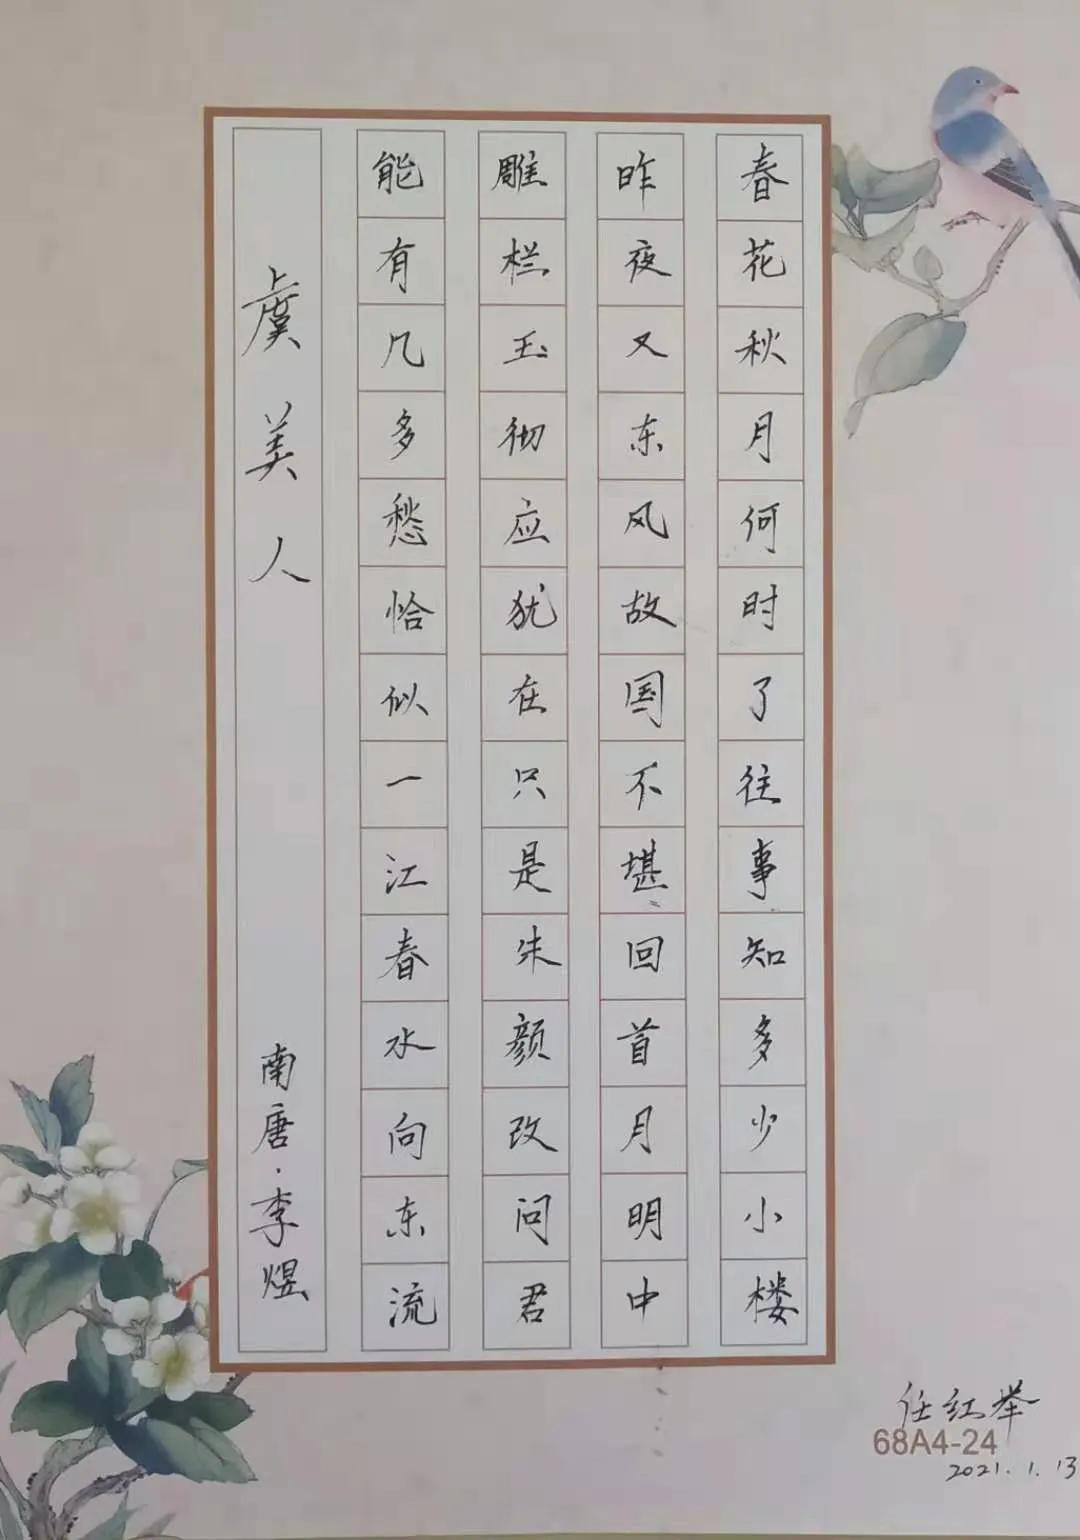 春花秋月何时了往事知多少小楼
昨夜又东风故国不堪回首月明中
雕栏玉彻应犹在只是朱颜改问君
能有几多愁恰似一江春水向东流
虞美人
南唐·李煜
任红举
68A4-24
2021.1.13